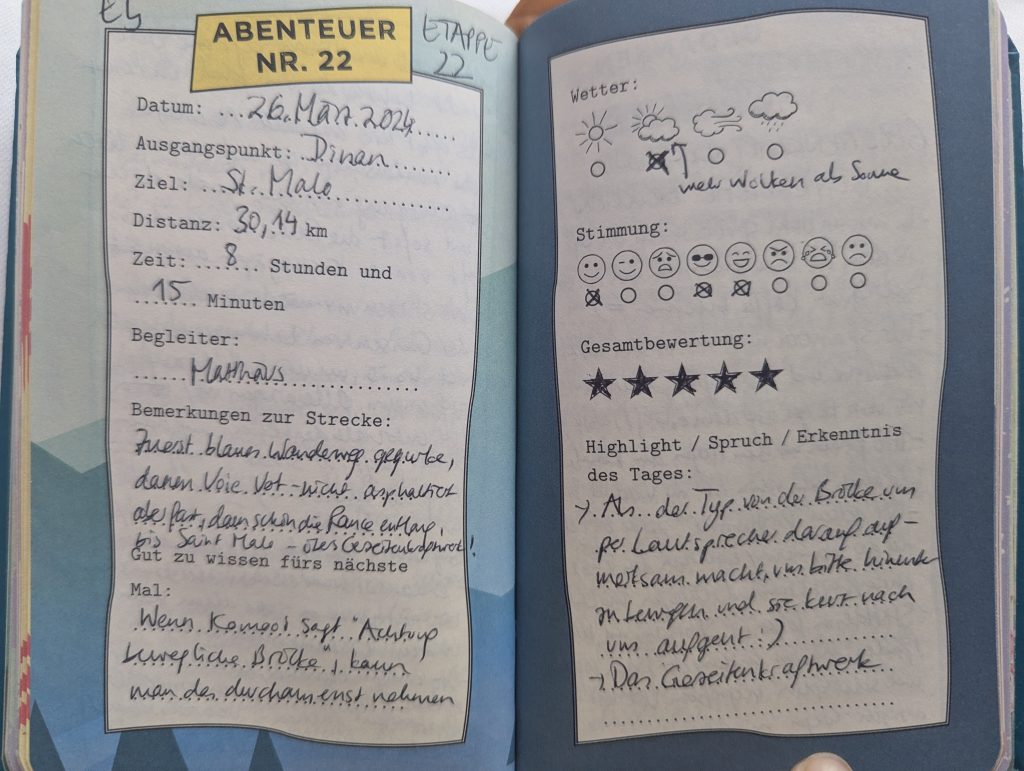 ABENTEUER
NR. 22
ETAPPE
22
Datum: 26. März 2024
Ausgangspunkt: Dinan
Ziel: St. Malo
Distanz: 30,14 km
Zeit: 8 Stunden und
15 Minuten
Begleiter:
Matthäus
Bemerkungen zur Strecke:
Zuerst blauer Wanderweg
danen Voie Vet - nicht asphaltiert
aber fast, dann schön die Rance entlang,
bis Saint Malo - übers Gezeitenkraftwerk!
Gut zu wissen fürs nächste
Mal:
Wenn Komoot sagt "Achtung
bewegliche Brücke", kann
man das durchaus ernst nehmen
Wetter:
mehr Wolken als Sonne
Stimmung:
Gesamtbewertung:
Highlight / Spruch / Erkenntnis
des Tages:
→ Als der Typ von der Brücke uns
per Lautsprecher darauf auf-
merksam macht, uns bitte hinunter
zu bewegen und sie kurz nach
uns aufgeht :)
→ Das Gezeitenkraftwerk